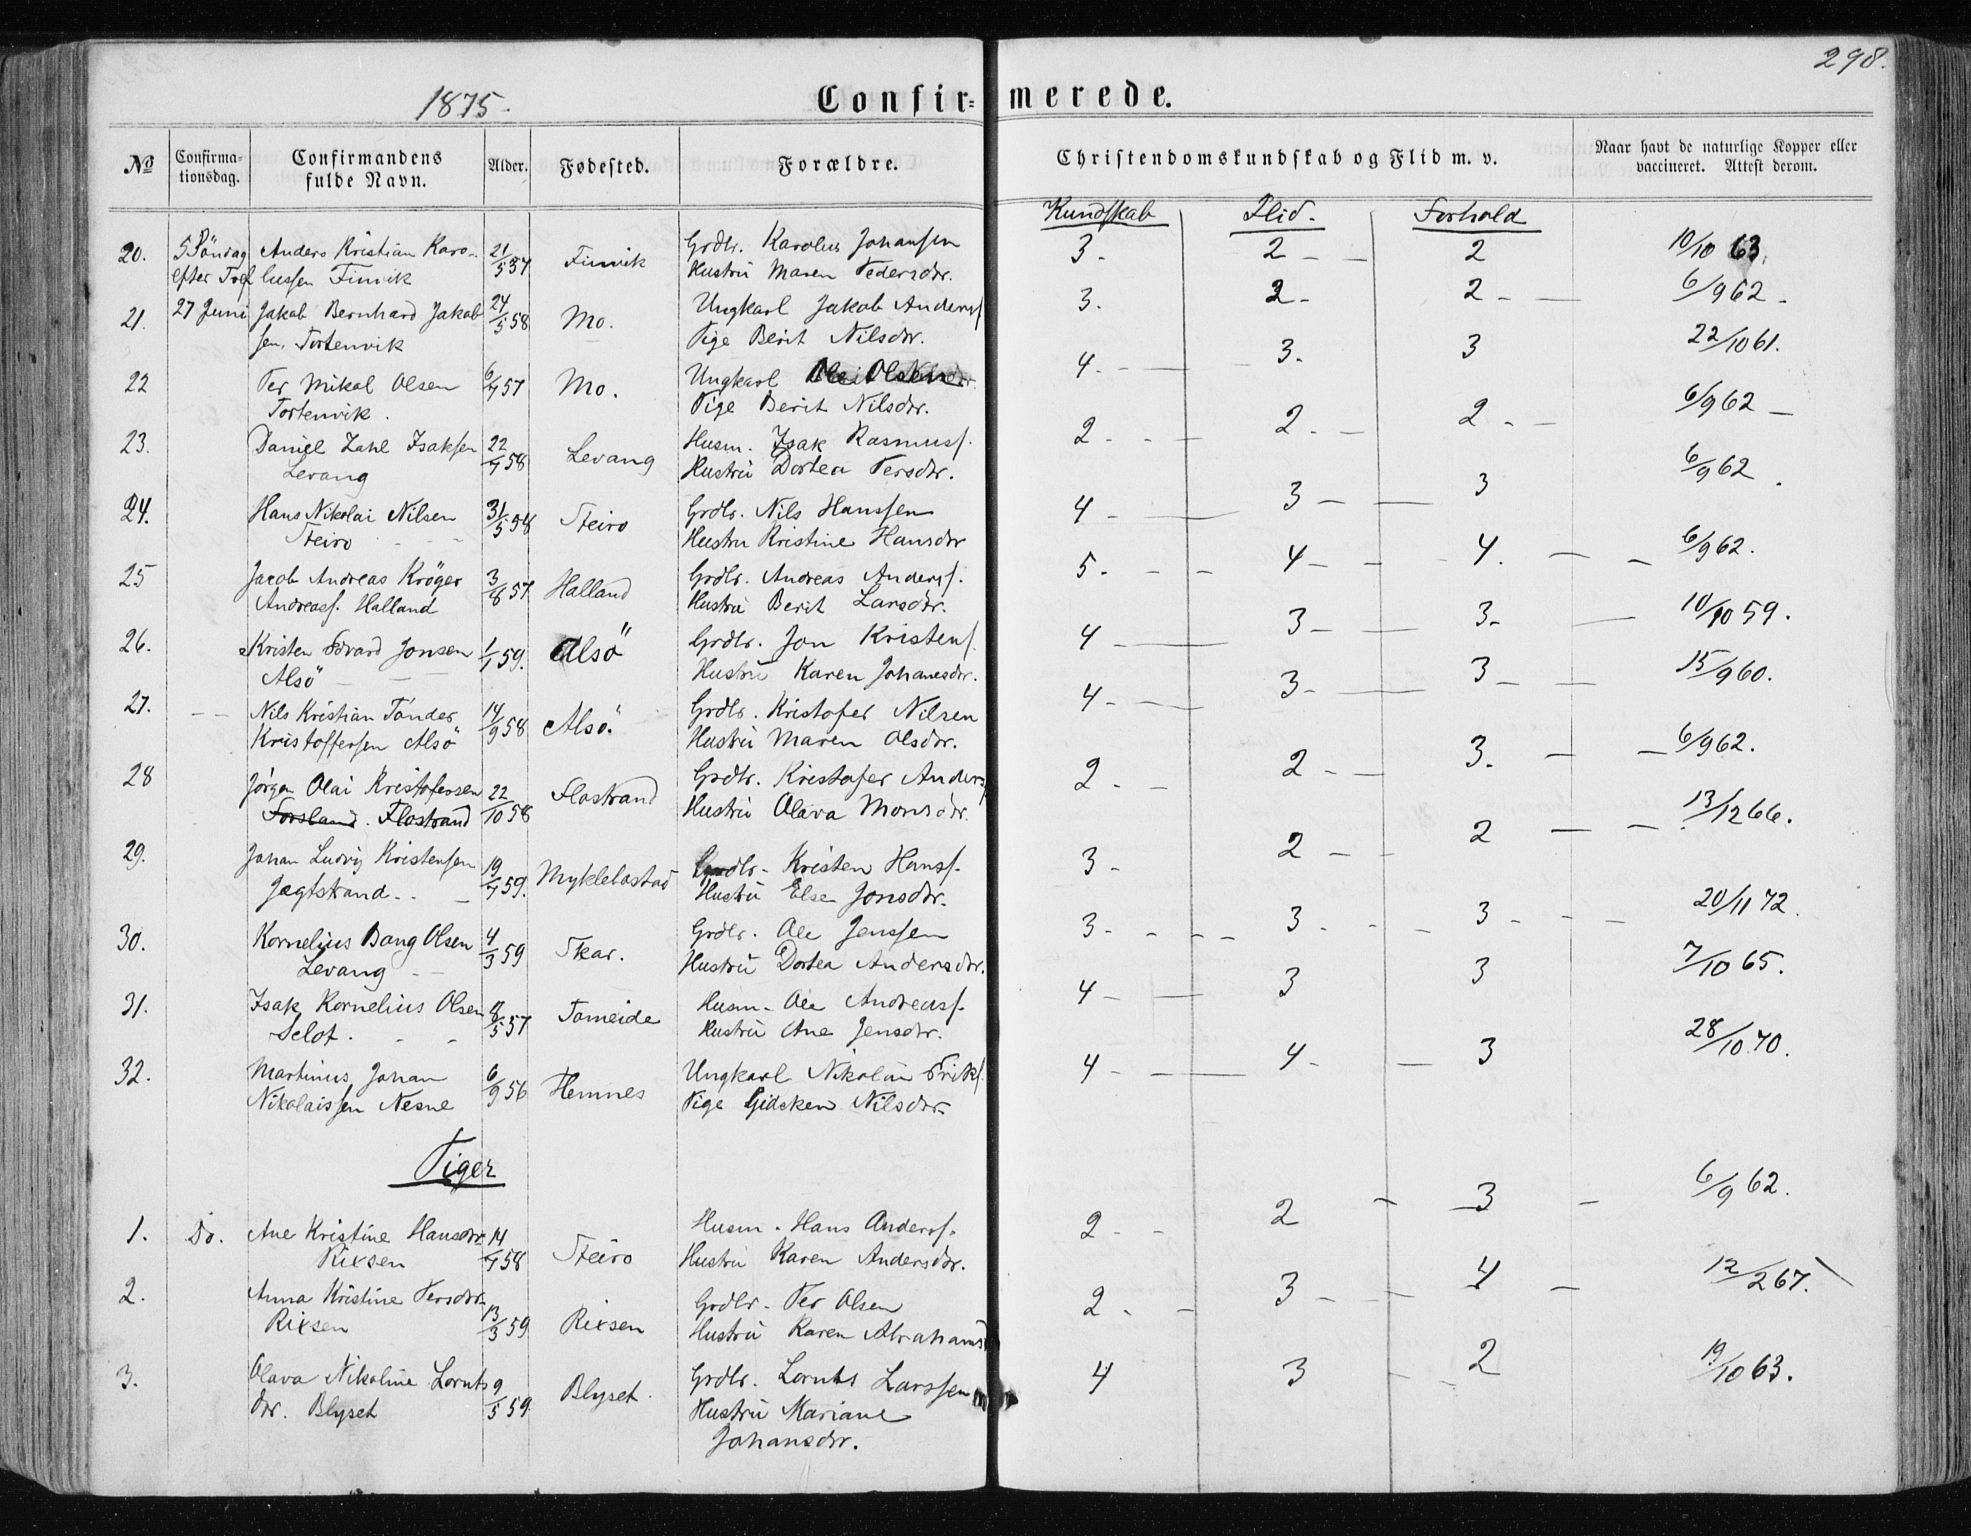 298.
1875.
Confir= merede.
No Confirma-tionsdag. Confirmandens fulde Navn. Alder. Fødested. Forældre. Christendomskundskab og Flid m. v. Naar havt de naturlige Kopper eller vaccineret. Attest derom.
Kundskab Flid. Forhold
20. 5 Söndag Anders Kristian Karo- 21/5 57 Finvik Grdbr. Karolus Johansen 3- 2 - - 2 10/10 63.
efter Tref lussen Finvik Hustru Maren Pedersdtr.
21. 27 Juni Jakob Bernhard Jakob 24/5 58 Mo. Ungkarl Jakob Anderss 3. 2- 2 - - 6/9 62 -
sen. Tortenvik Pige Berit Nilsdtr.
22 Per Mikal Olsen 6/7 57 Mo. Ungkarl 4. - - 3. 3 22/10 61.
Tortenvik. Pige Berit Nilsdtr.
23. Daniel Zahl Isaksen 22/7 58 Levang Husm. Isak Rasmuss. 2 - - - 2. - 2 - - 6/9 62 -
Levang Hustru Dortea Persdtr.
24. Hans Nikolai Nilsen 31/5 58 Steiro Grdbr. Nils Hanssen 4 - 3 - - 3 6/9 62.
Steiro - - - Hustru Kristine Hansdtr
25 Jacob Andreas Kröger 3/8 57 Halland Grdbr. Andreas Anderss. 5. - - 4 - - 4. - - 6/9 62.
Andreass. Halland Hustru Berit Larsdtr.
26. Kristen Edvard Jonsen 1/1 59. Alsö Grdbr. Jon Kristens. 4 - 3 - - 3- - 10/10 59.
Alsö - - - Hustru Karen Johanesdtr.
27. - - Nils Kristian Tönder 14/9 58 Alsö. Grdbr. Kristofer Nilsen 4 - - 3 - - 3 - - 15/9 60.
Kristoffersen Alsö Hustru Maren Olsdtr.
28 Jörgen Olai Kristofersen 22/10 58 Flostrand Grdbr. Kristofer Anders 2 - - 2 - - 3. - - 6/9 62.
Forsland. Flostrand Hustru Olava Monsdtr.
29. Johan Ludvig Kristensen 19/7 59. Myklebostad Grdbr - Kristen Hanss. 3 - 2 - - 2 - - 13/12 66.
Jægtstrand - . - Hustru Else Jonsdtr.
30. Kornelius Bang Olsen 4/3 59 Skar. Grdbr. Ole Jenssen 3 - - - - 3 - - - 3 - - - 20/11 72.
Levang - - Hustru Dortea Andersdtr.
31. Isak Kornelius Olsen 8/5 57 Tomeide Husm - Ole Andreass. 4 - - 3 3 7/10 65.
Selot. - - Hustru Ane Jensdtr.
32. Martinus Johan 6/9 56 Hemnes Ungkarl Nikolai Eriks. 4 - - 4 - - 3 28/10 70.
Nikolaissen Nesne Pige Gidsken Nilsdtr.
Piger
1. Do. Ane Kristine Hansdtr 14/7 58 Steiro Husm - Hans Anderss. 2 - - 2 - 3 - 6/9 62.
Rixsen Hustru Karen Andersdtr.
2. Anna Kristine Persdtr. 13/3 59 Rixsen Grdbr - Per Olsen 2 - - 3 - - 4 - 12/2 67.
Rixsen Hustru Karen Abrahams
3. Olava Nikoline Lornts 9/5 59. Blyset. Grdbr. Lornts Larssen 4 3 - - 2 19/10 63.
dtr. Blyset Hustru Mariane
Johansdtr.